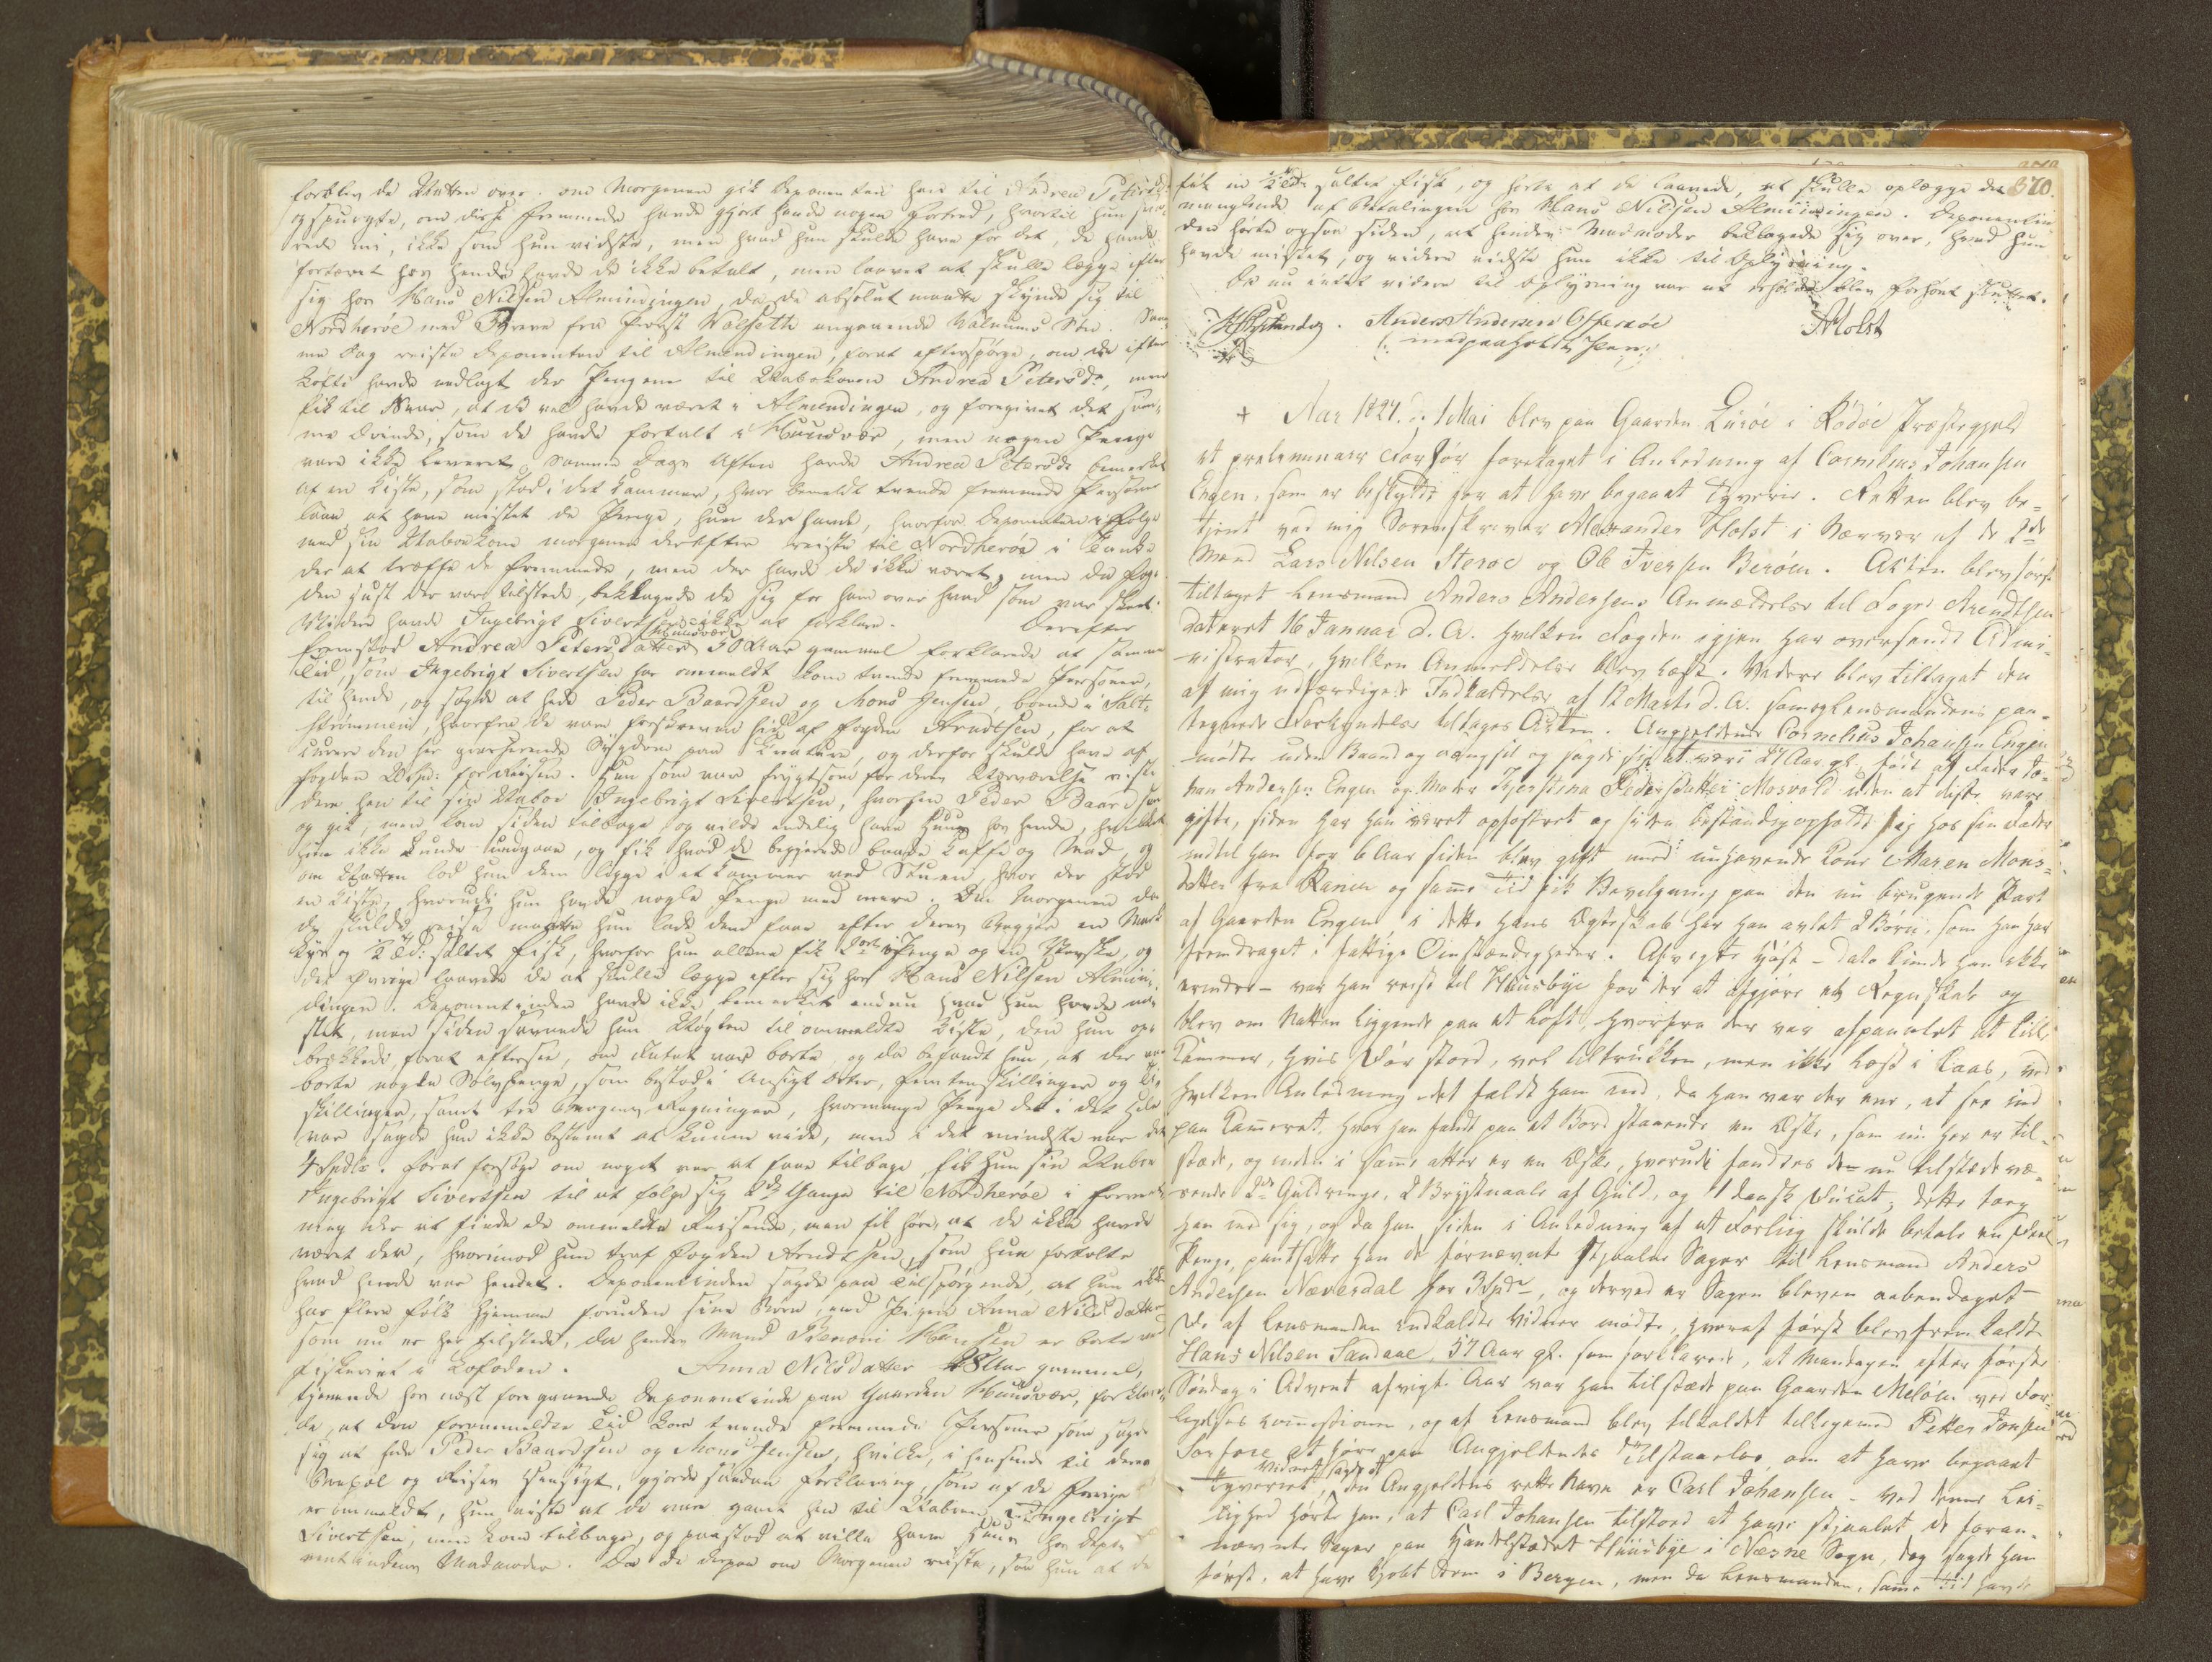 forblev de Natten over. om Morgenen gik Deponenten hen til Andrea Petersd:
og spurgte, om disse fremmede havde gjort hende nogen Fortred, hvortil hun sva-
rede nei, ikke som hun vidste, men hvad hun skulde have for det, de havde
fortæret hos hende havde de ikke betalt, men lovet at skulle lægge efter
sig hos Hans Nilsen Almindingen, da de absolut maatte skynde sig til
Nordherøe med Breve fra Provst Wolseth angaaende Søn. Sam-
me Dag reiste Deponenten til Almendingen, forat efterspørge, om de efter
Løfte havde nedlagt der Pengene til Nabokonen Andrea Petersdr, men
fik til Svar, at de vel havde været i Almendingen, og foregivet det sam-
me Ærinde, som de havde fortalt i Huusvær, men nogen Penge
vare ikke leveret. Samme Dags Aften havde Andrea Petersdr bemærket
af en Kiste, som stod i det Kammer, hvor bemeldte tvende fremmede Personer
laae, at have mistet de Penge, hun der havde, hvorfor Deponenten i Følge
med sin Nabokone morgenen derefter reiste til Nordherøe i Tanke
der at træffe de fremmede, men der havde de ikke været, men da Fog-
den just der var tilstede, beklagede de sig for ham over hvad som var skeet.
Videre havde Ingebrigt Sivertsen ikke at forklare. Derefter
fremstod Andrea Peters Datter Huusvær 50 Aar gammel forklarede at samme
Tid, som Ingebrigt Sivertsen har ommeldt kom tvende fremmede Personer,
til hende, og sagde at hede Peder Baardsen og Mons Jensen, boende i Salt-
strømmen, hvorfra de vare forskrevne hid af Fogden Arndtsen, for at
curere den her grasserende Sygdom paa Creature, og derfor skulde have af
Fogden 20 Spd: for Reisen. Hun som var frygtsom for deres Nærværelse viste
dem hen til sin Naboe Ingebrigt Sivertsen, hvorhen Peder Baardsen
og gik, men kom siden tilbage og vilde endelig have Huus hos hende, hvilket
hun ikke kunde undgaae, og fik hvad de begjerede baade Kaffe og Mad, og
om Natten lod hun dem ligge i et Kammer ved Stuen, hvor der stod
en Kiste, hvorudi hun havde nogle Penge med mere. Om Morgenen da
de skulde reise maatte hun lade dem faae efter deres Begjær en Mark
og saltet Fisk, hvorfor hun allene fik i Penge og en Flaske, og
det øvrige lovede de at skulle lægge efter sig hos Hans Nilsen Almin-
dingen. Deponentinden havde ikke bemærket endnu hvad hun havde mi-
stet, men siden savnede hun Nøglen til ommeldte Kiste, den hun op-
brækkede, forat eftersee, om Intet var borte, og da befandt hun, at der var
borte nogle Sølvpenge, som bestode i Ansigt Orter, femten skillinger og
skillinger, samt tre Regninger, hvormange Penge det i det hele
var sagde hun ikke bestemt at kunne vide, men i det mindste var det
4 Spdlr. Forat forsøge om noget var at faae tilbage, fik hun sin Naboe
Ingebrigt Sivertsen til at følge sig 2de Gange til Nordherøe i Formee-
ning der at finde de ommeldte Reisende, men fik høre, at de ikke havde
været der, hvorimod hun traf Fogden Arndtsen, som hun fortalte
hvad hende var hendet. Deponentinden sagde paa Tilspørgende, at hun ikke
har flere Folk hjemme foruden sine Børn, end Pigen Anna Nilsdatter
som nu er her tilstede, da hendes Mand Benoni Hansen er borte ved
Fiskeriet i Lofoden. Anna Nilsdatter 28 Aar gammel,
tjenende hos næst foregaaende Deponentinde paa Gaarden Huusvær, forklare-
de, at den forommeldte Tid kom tvende fremmede Personer som sagde
sig at hede Peder Baardsen og Mons Jensen, hvilke, i henseende til deres
Bopæl og Reisens Hensigt, gjorde saadan Forklaring, som af de forrige
er ommeldt, hun viste at de vare gaaet hen til Naboen Ingebrigt
Sivertsen, men kom tilbage, og paastod at ville have Huus hos Depo-
nentindens Madmoder. Da de derpaa om Morgenen reiste, saa hun at de
fik en saltet Fisk, og hørte at de lovede, at skulle oplægge det
manglende af Betalingen hos Hans Nilsen Almindingen. Deponentin-
den hørte ogsaa siden, at hendes Madmoder beklagede sig over, hvad hun
havde mistet, og videre vidste hun ikke til Oplysning.
Da nu intet videre til Oplysning var at erholde blev Forhøret sluttet.
370.
Anders Andersen Offersøe
(: med paaholden Pen :)
AHolst
+ Aar 1827. d: 1 Mai blev paa Gaarden Lurøe i Rødøe Præstegjeld
et preliminair Forhør foretaget i Anledning af Cornelius Johansen
Engen, som er beskyldt for at have begaaet Tyverie. Retten blev be-
tjent ved mig Sorenskriver Alexander Holst i Nærvær af de 2de
Mænd Lars Nilsen Sterøe og Ole Iversen Berøen. Akten blev først
tiltaget Lensmand Anders Andersens Anmeldelse til Foged Arendtsen
dateret 16 Januar d. A. hvilken Fogden igjen har oversendt Admi-
nistrator, hvilken Anmeldelse blev læst. Videre blev tiltaget den
af mig udfærdigede Indkaldelse af 12 Marts d. A. samt Lensmandens paa-
tegnede Forkyndelse tiltages Akten. Angjeldende Cornelius Johansen Engen
mødte uden Baand og tvangfri og sagde sig at være 27 Aar gl. født af Fader Jo-
han Andersen Engen og Moder Kjerstina Pedersdatter Mosvold uden at disse vare
gifte, siden har han været opfostret og siden bestandig opholdt sig hos sin Fader
indtil han for 6 Aar siden blev gift med nuhavende Kone Maren Mons-
datter fra Ranen og samme Tid fik Bevilgning paa den nu brugende Part
af Gaarden Engen, i dette hans Ægteskab har han avlet 2 Børn, som han har
fremdraget i fattige Omstændigheder. Afvigte Høst – Dato kunde han ikke
erindre – var han reist til Huusbye for der at afgjøre et Regnskab og
blev om Natten liggende paa et Loft, hvorfra der var afpanelet et lidet
Kammer, hvis Dør stod, vel tiltrukken, men ikke læst i Laas, ved
hvilken Anledning det faldt ham ind, da han var der ene, at see ind
paa Kammeret, hvor han fandt paa et Bord staaende en Æske, som nu her er til-
stede, og inden i samme atter er en Æske, hvorudi fandtes de nu tilstedevæ-
rende 2de Guldringe, 2 Brystnaale af Guld, og 1 dansk Ducat; dette tog
han med sig, og da han siden i Anledning af et Forliig skulde betale en Deel
Penge, pantsatte han de førnævnte stjaalne Sager til Lensmand Anders
Andersen Næverdal for 3 Spdr, og derved er Sagen bleven aabendaget –
De af Lensmanden indkaldte Vidner mødte, hvoraf først blev fremkaldt
Hans Nilsen Sandaae, 57 Aar gl. som forklarede, at Mandagen efter første
Søndag i Advent afvigte Aar var han tilstede paa Gaarden Meløen ved For-
ligelses Commissionen, og af Lensmand blev tilkaldet tilligemed Petter Jonsen
Sørfore at høre paa Angjeldendes Tilstaaelse, om at have begaaet
Tyveriet, Vidnet sagde at den Angjeldens rette Navn er Carl Johansen – Ved denne Lei-
lighed hørte han, at Carl Johansen tilstod at have stjaalet de foran-
nævnte Sager paa Handelstædet Huusbye i Næsne Sogn, dog sagde han
først, at have kjøbt dem i Bergen, men da Lensmanden, samme Tid havde